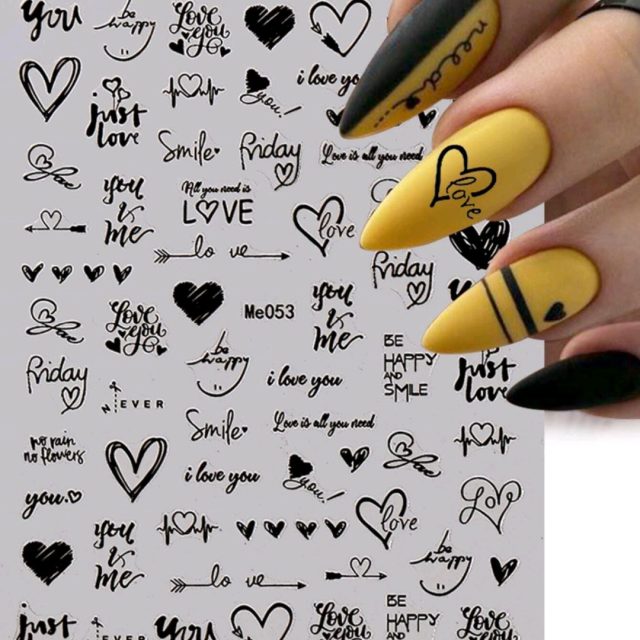 you
be
happy
Love
you
i love yo
neede...
just
love
you!
Smile
friday
Love is all you need
love
Love
you
&
me
All you need is
LOVE
love
lo ve
friday
Me053
Love
you
Love
you
&
me
be
happy
BE
HAPPY
AND
SMILE
just
love
friday
NEVER
i love you
Smile
Love is all you need
no rain
no flowers
i love you
you!
Love
you.
love
Love
you
&
me
be
happy
lo ve
just
EVER
you
Love
you
BE
HAPPY
AND
Love
you